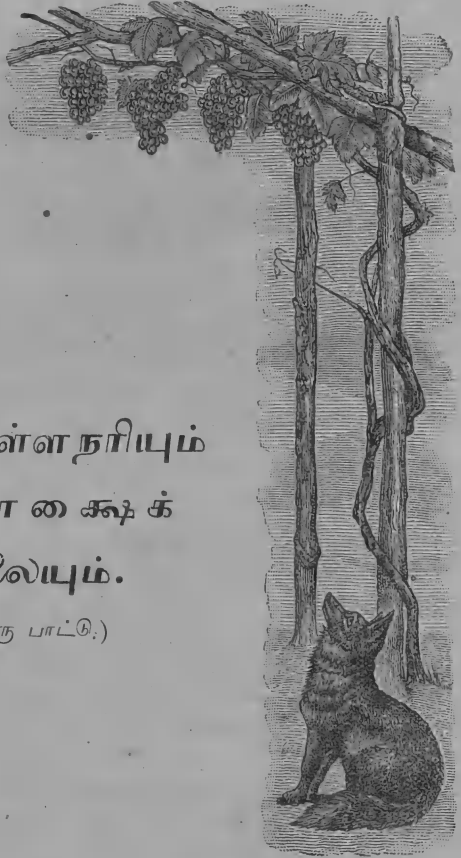 ள்ளநரியும்
ாக்ஷைக்
லையும்.
ரு பாட்டு.)